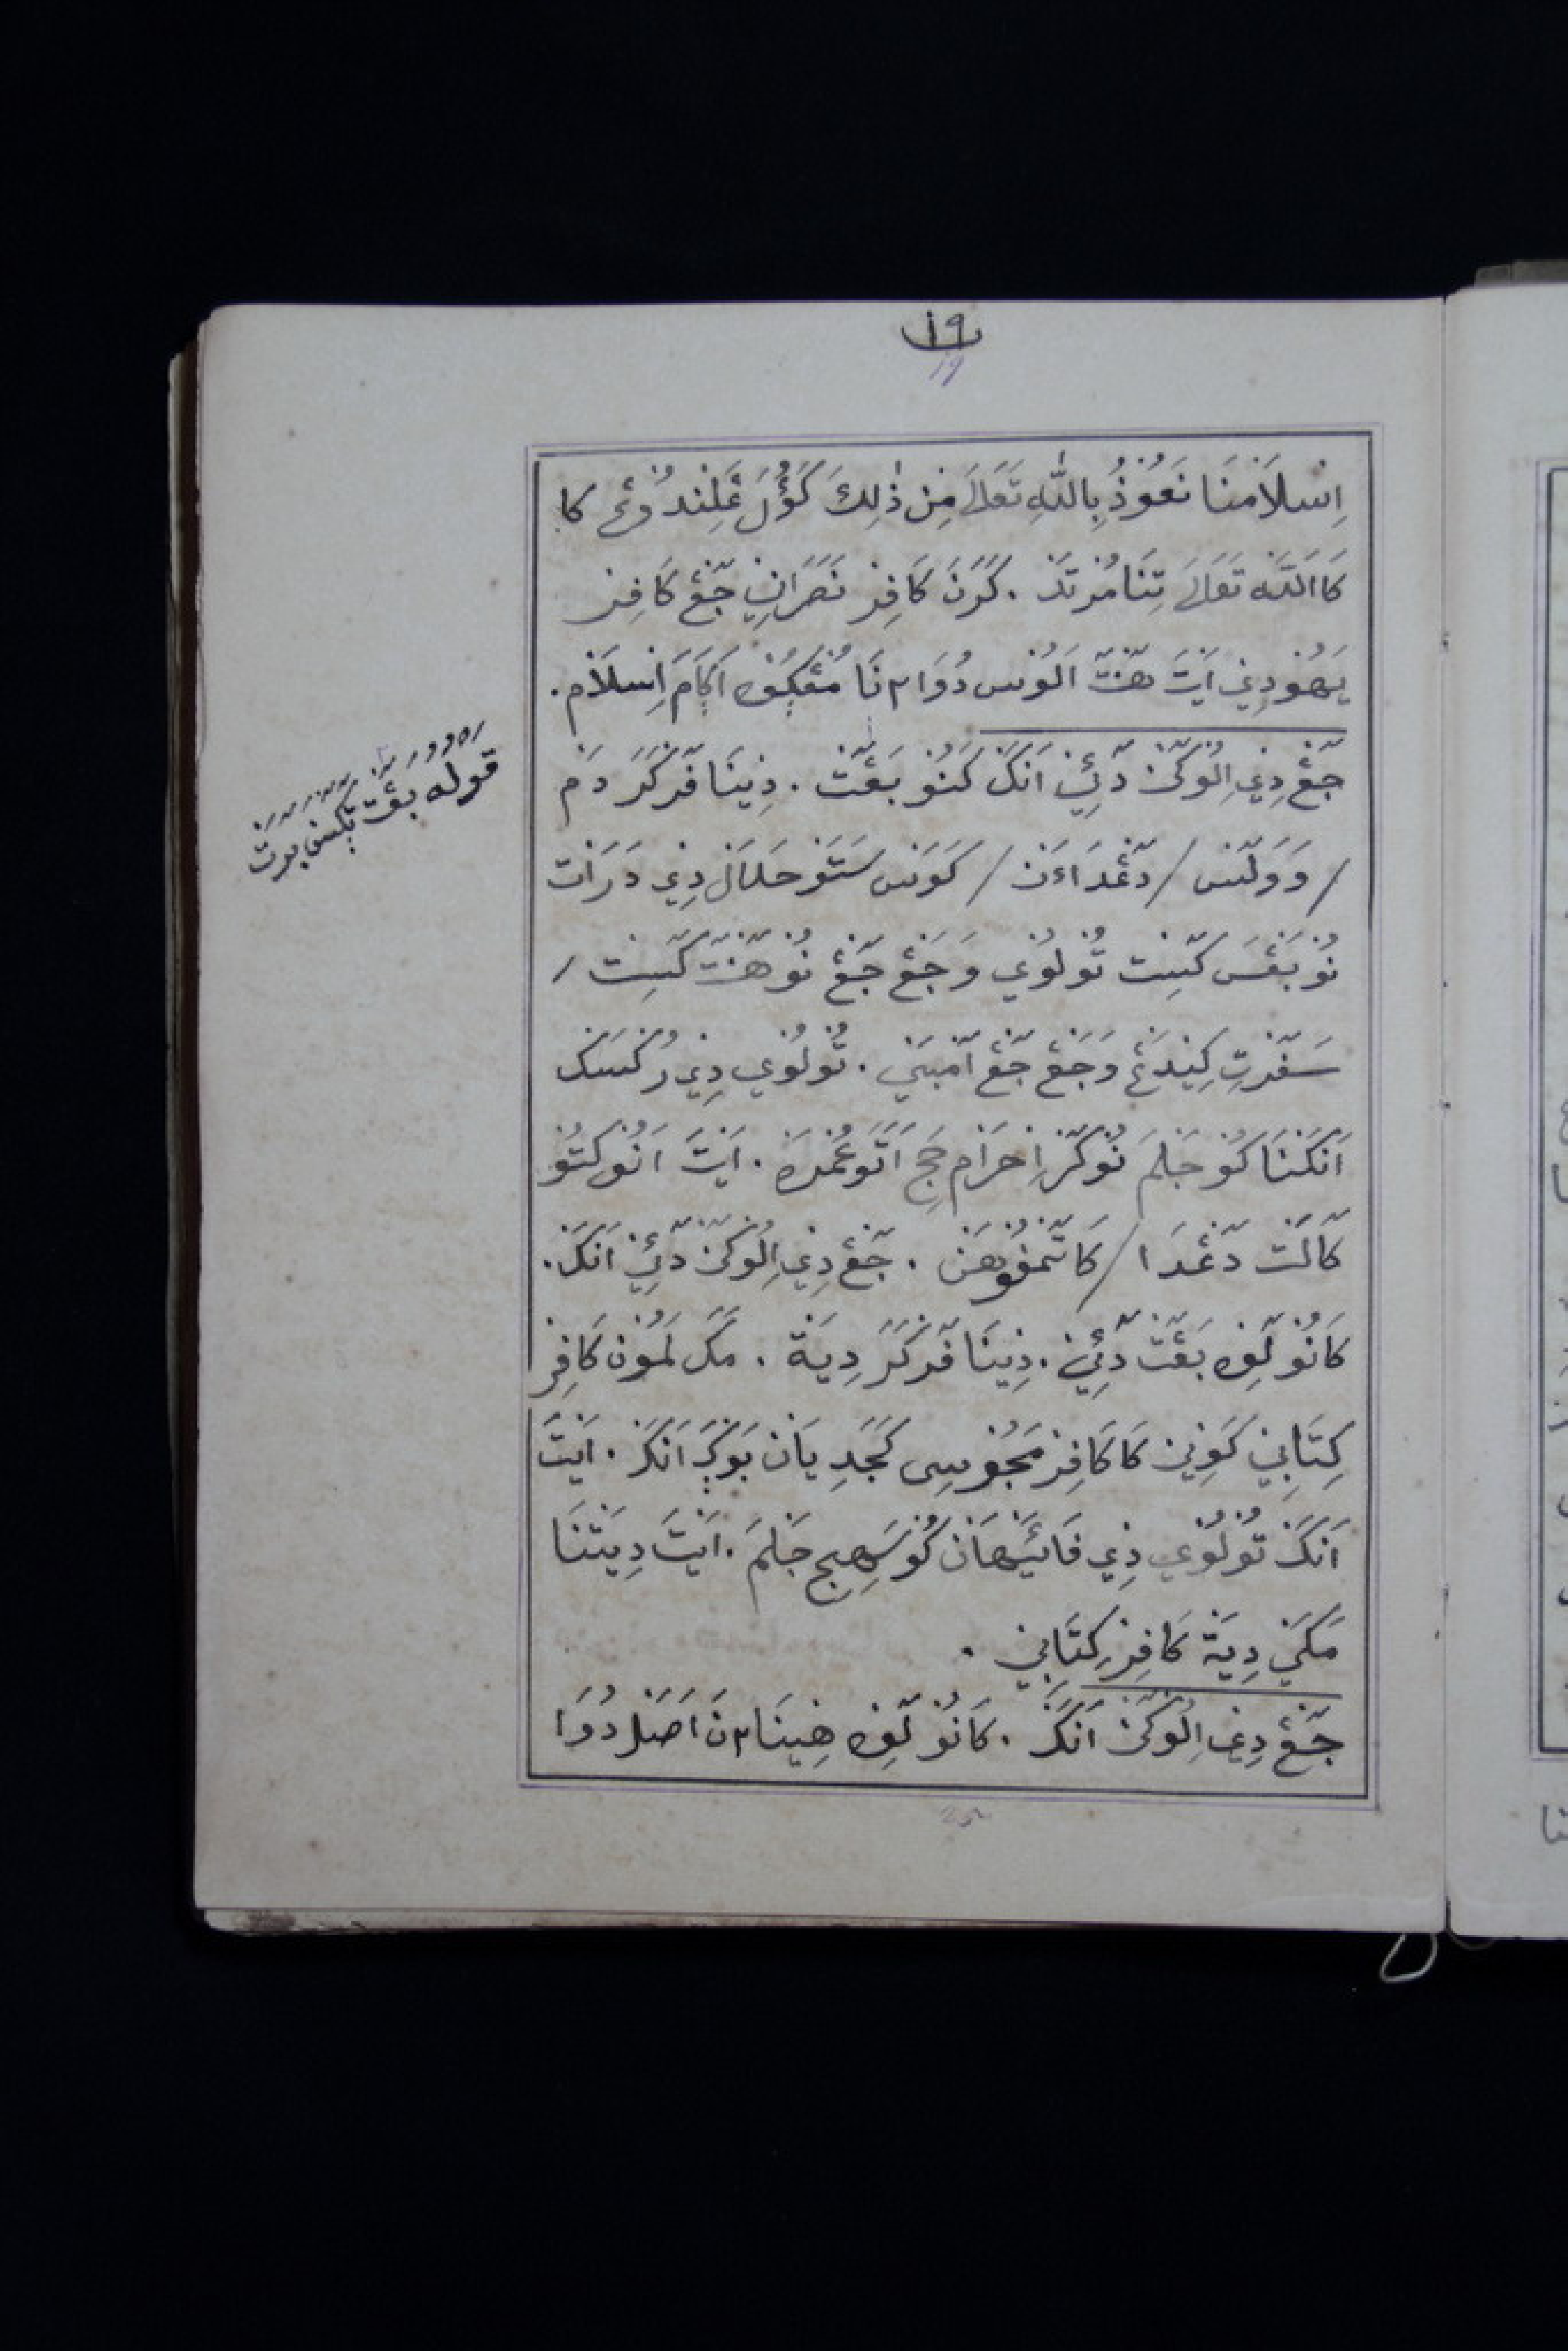 ١٩
19
اِسْلَامْنَا نَعُوْذُ بِاللّٰهِ تَعَالَى مِنْ ذٰلِكَ كَؤُلَ غَلِنْدُوڠِ كَا
كَااللّٰه تَعَالَى تِنَا مُرْتَدْ . كَرَنَ كَافِرْ نَصْرَانِيْ جَڠْ كَافِرْ
يَهُوْدِيْ اَيْتَ هَنْتَ اَلُوْسْ دُوَا٢نَا مُڠْكُوْه اَݢَامَ اِسْلَامْ.
جَڠْ دِيْ اِلُوْكَنْ دَئِيْ اَنَكْ كَنُوْ بَڠَتْ . دِيْنَا فَرْكَرَ دَمْ
/ وَوَلَنْسْ / دَڠْدَاءَنْ / كَوَسْ سَتَوْ حَلَالْ دِيْ دَرَاتْ
نُوْ بَڠْسَ كَسِتْ تُوْلُوْيْ وَجَڠْ جَڠْ نُوْ هَنْتَ كَسِتْ /
سَفَرْتِ كِيْدَڠْ وَجَڠْ جَڠْ اَمْبَنِيْ . تُوْلُوْيْ دِيْ رُكْسَكْ
اَنَكْنَا كُوْ جَلْمَ نُوْكَرْ اِحْرَامْ حَجِّ اَتَوَ عُمْرَةْ . اَيْتَ اَنُوْ كَتُوْ
كَالَتْ دَڠْدَا / كَاتَمْفُوْهَنْ . جَڠْ دِيْ اِلُوْكَنْ دَئِيْ اَنَكْ.
كَانُوْ لَفِهْ بَڠَتْ دَئِيْ . دِيْنَا فَرْكَرَ دِيَةْ . مَكَ لَمُوْنْ كَافِرْ
كِتَابِيْ كَوِيْنْ كَا كَافِرْ مَجُوْسِى كَجَدِيَانْ بَوْݢَ اَنَكْ . اَيْتَ
اَنَكْ تُوْلُوْيْ دِيْ فَائَيْهَانْ كُوْ سَهِيجِ جَلْمَ . اَيْتَ دِيَتْنَا
مَكَيْ دِيَةْ كَافِرْ كِتَابِيْ .
جَڠْ دِيْ اِلُوْكَنْ اَنَكْ . كَانُوْ لَفِهْ هِيْنَا٢نَ اَصَلْ دُوَا
قوله بڠت تݢسن بوت